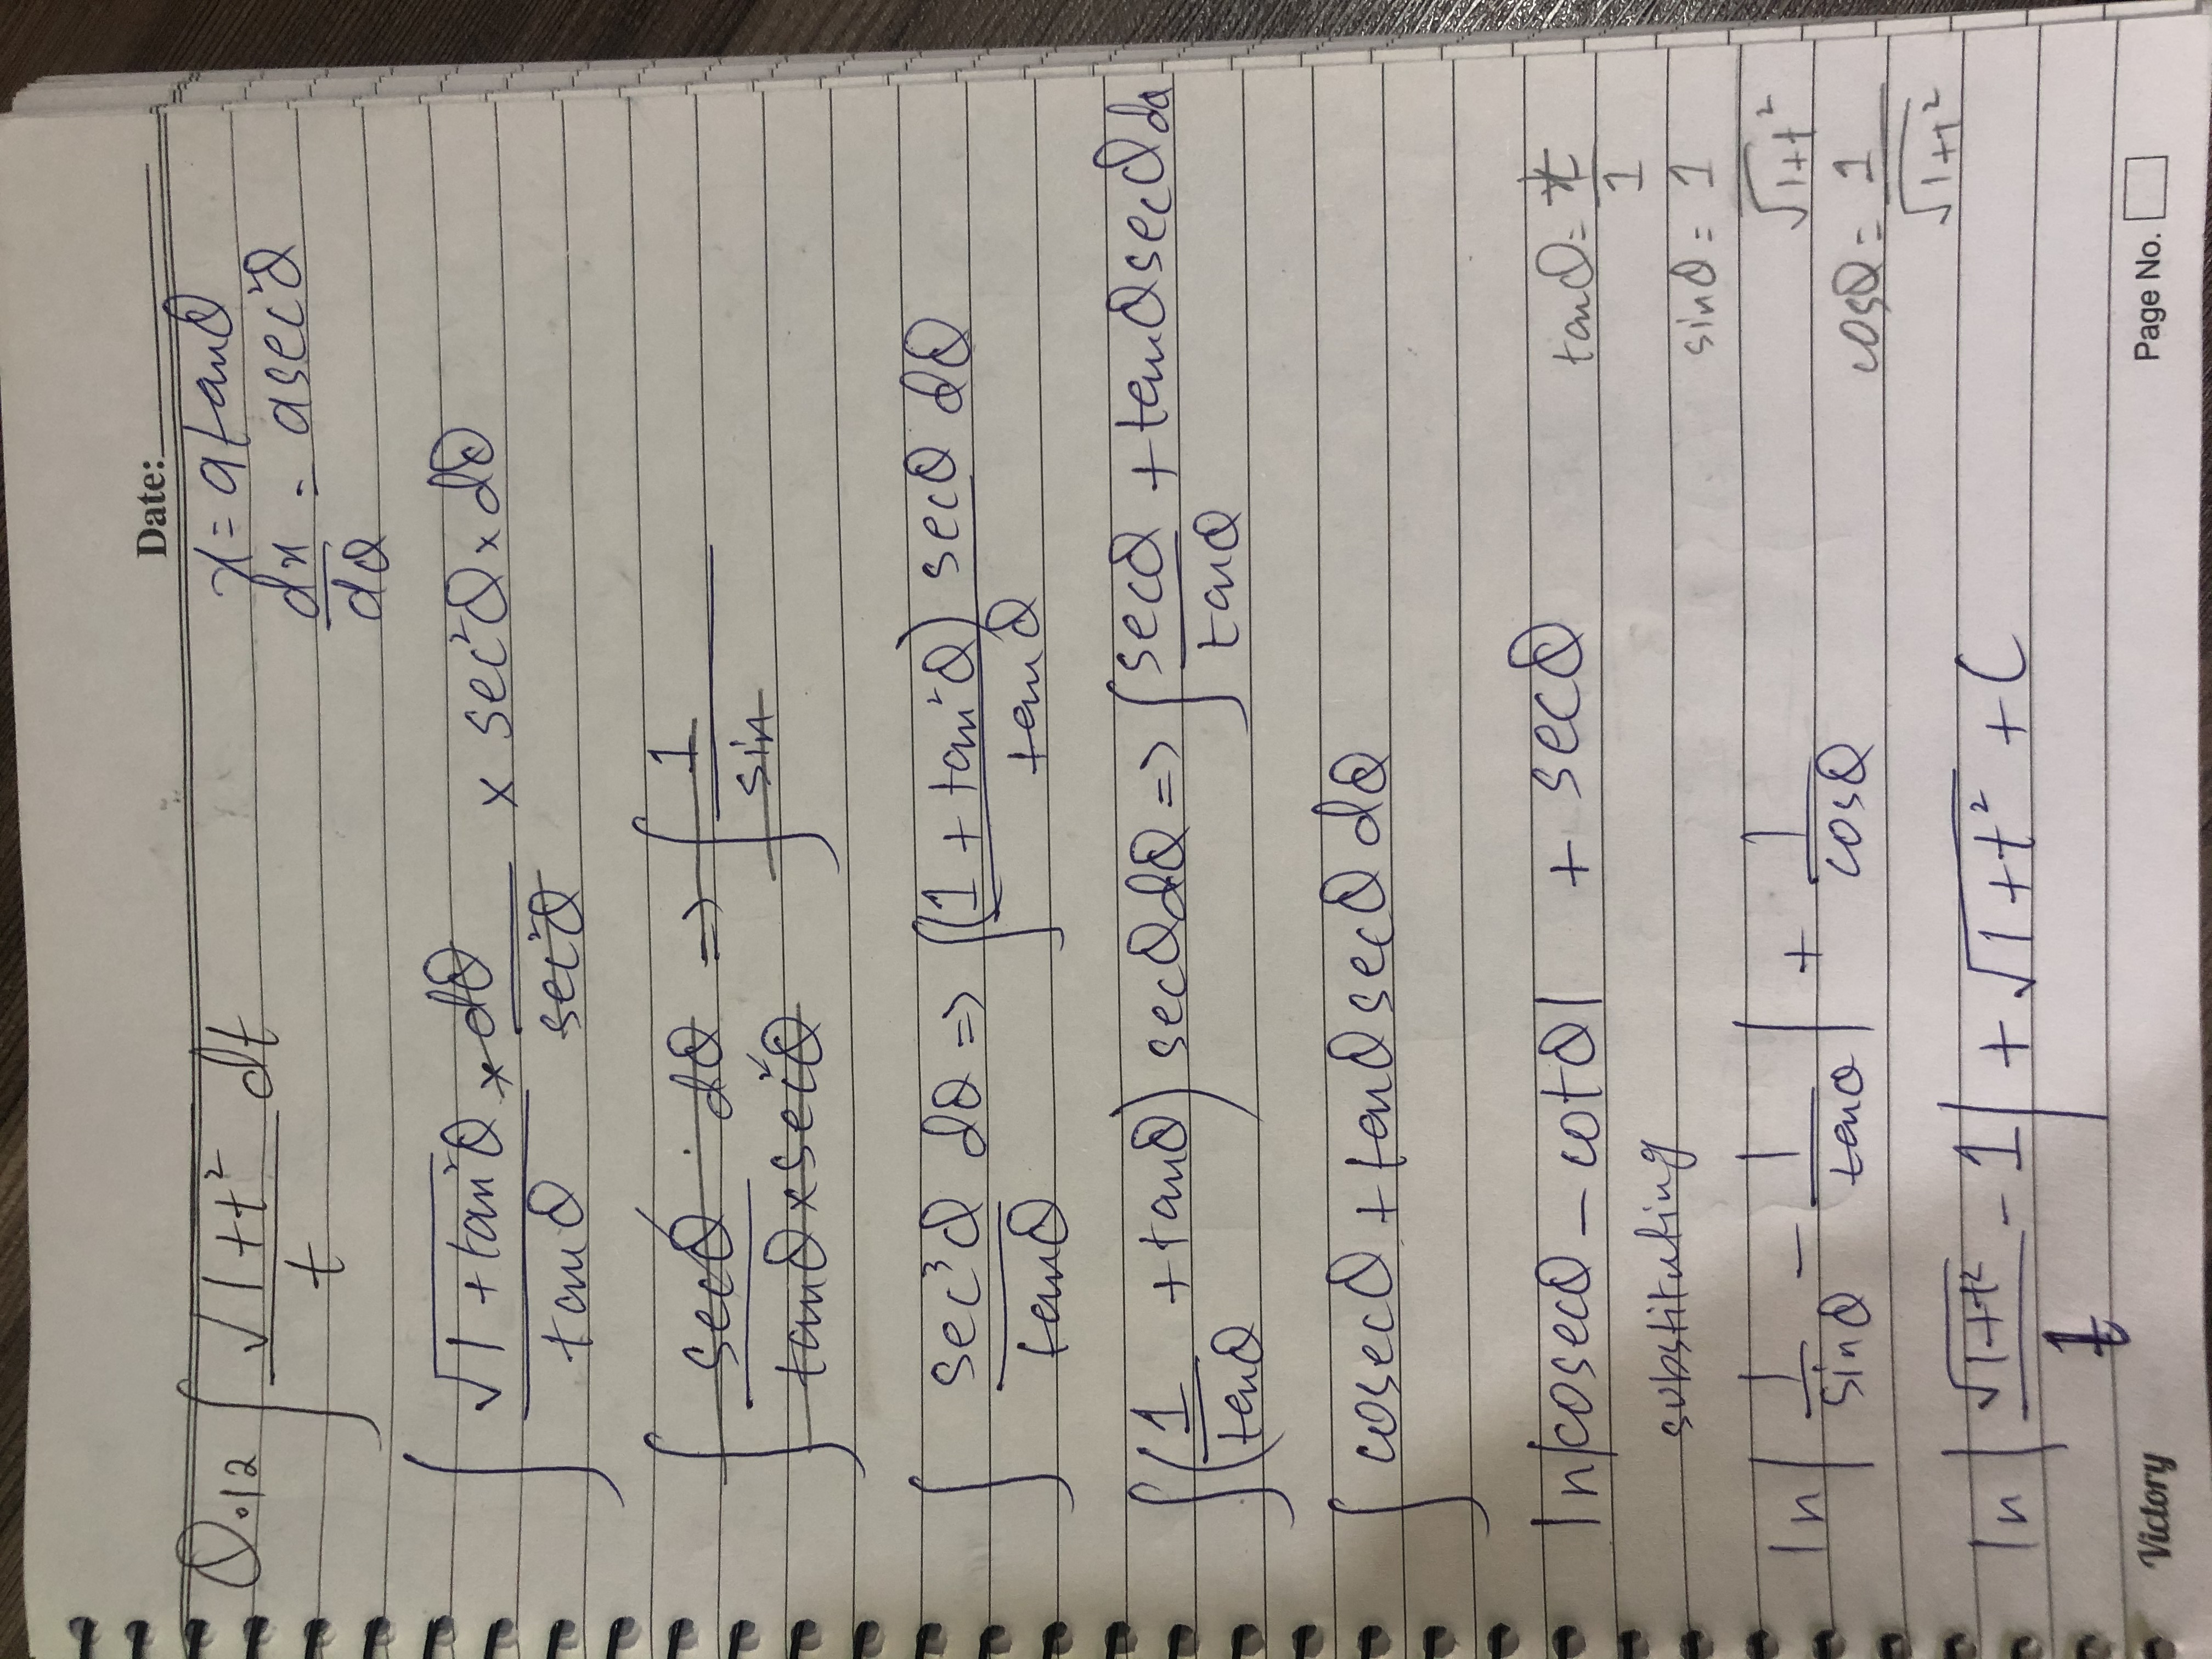 Date:
Q.12 ∫ √(1+t²)/t dt
x = a tanθ
dx/dθ = a sec²θ
∫ √(1+tan²θ)/tanθ × dθ/sec²θ × sec²θ × dθ
∫ secθ · dθ/(tanθ × sec²θ) => ∫ 1/sin
∫ sec³θ/tanθ dθ => ∫ (1+tan²θ) secθ/tanθ dθ
∫ (1/tanθ + tanθ) secθ dθ => ∫ secθ/tanθ + tanθ secθ dθ
∫ cosecθ + tanθ secθ dθ
ln|cosecθ - cotθ| + secθ
tanθ = t/1
substituting
sinθ = 1/√(1+t²)
ln|1/sinθ - 1/tanθ| + 1/cosθ
cosθ = 1/√(1+t²)
ln|√(1+t²)/t - 1| + √(1+t²) + C
Victory
Page No.